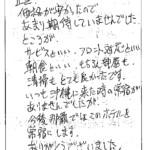 価格が安かったので
あまり期待していませんでした
ところが
サービスといい、フロント対応といい
朝食といい、もちろん部屋も
清掃も とても良かったです。
いつも沖縄に来た時の常宿が
ありませんでしたが
今後那覇ではこのホテルを
常宿にします
ありがとうございました。